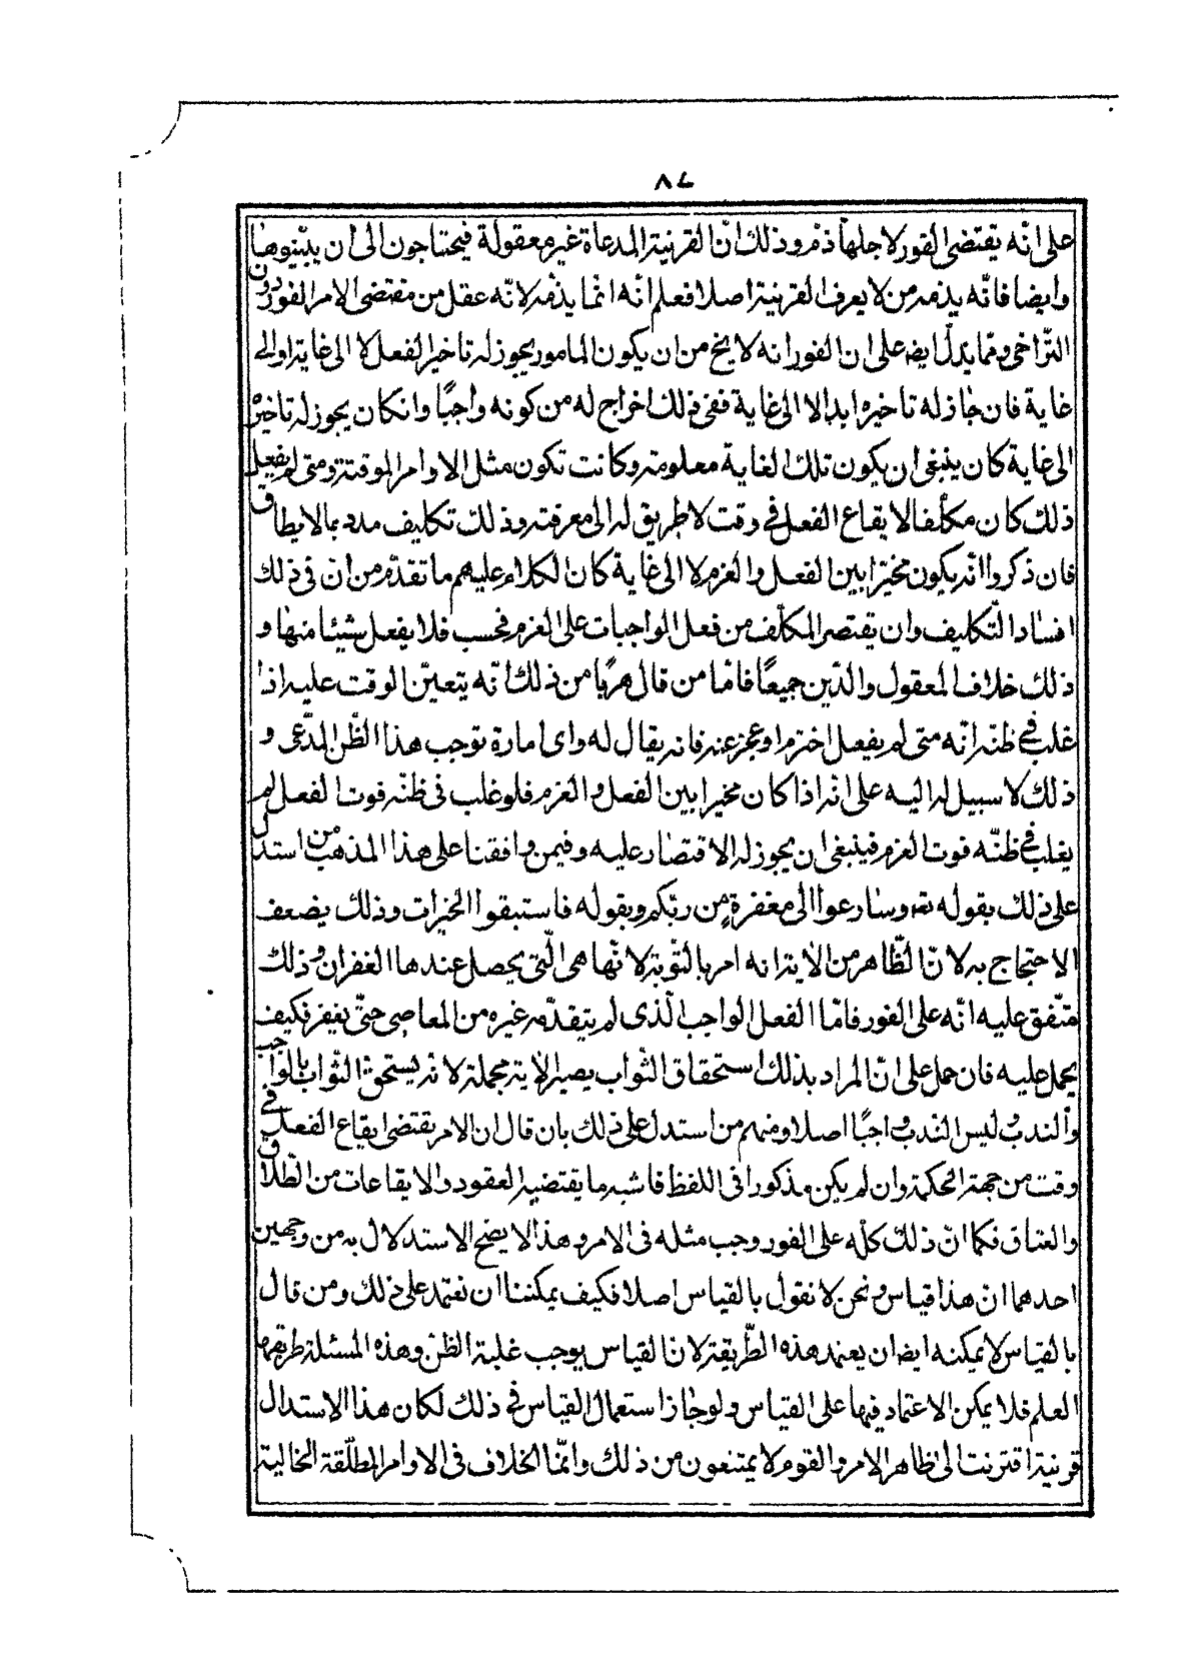 ٨٧
على انّه يقتضى الفور لاجلها ذمّ وذلك انّ القرينة المدعاة غير معقولة فيحتاجون الى ان يبيّنوها
وايضا فانّه يذمه من لا يعرف القرينة اصلا فعلم انّه انّما يذمّه لانّه عقل من مقتضى الامر الفور دون
التّراخى وممّا يدلّ ايضا على ان الفور انه لا يخ من ان يكون المامور يجوز له تاخير الفعل لا الى غاية او الى
غاية فان جاز له تاخيره ابدا لا الى غاية ففى ذلك اخراج له من كونه واجبًا وانكان يجوز له تاخيره
الى غاية كان ينبغى ان يكون تلك الغاية معلومة وكانت تكون مثل الاوامر الموقتة ومتى لم يفعل
ذلك كان مكلّفا لايقاع الفعل فى وقت لا طريق له الى معرفته وذلك تكليف بما لا يطاق
فان ذكروا انّه يكون مخيّرا بين الفعل والعزم لا الى غاية كان الكلام عليهم ما تقدّم من انّ فى ذلك
افساد التّكليف وان يقتصر المكلّف من فعل الواجبات على العزم فحسب فلا يفعل شيئا منها و
ذلك خلاف المعقول والدّين جميعًا فامّا من قال هربًا من ذلك انّه يتعيّن الوقت عليه اذا
غلب فى ظنّه انّه متى لم يفعل اخترم او عجز عنه فانه يقال له واى امارة توجب هذا الظّن المدّعى و
ذلك لا سبيل له اليه على انّه اذا كان مخيرا بين الفعل والعزم فلو غلب فى ظنّه فوت الفعل لم
يغلب فى ظنّه فوت العزم فينبغى ان يجوز له الاقتصار عليه وفيمن وافقنا على هذا المذهب من استدل
على ذلك بقوله تعه وسارعوا الى مغفرةٍ من ربّكم وبقوله فاستبقوا الخيرات وذلك يضعف
الاحتجاج به لانّ الظّاهر من الاية انه امر بالتّوبة لانّها هى الّتى يحصل عندها الغفران وذلك
متّفق عليه انّه على الفور فامّا الفعل الواجب الّذى لم يتقدّمه غيره من المعاصى حتّى يغفر فكيف
يحمل عليه فان حمل على انّ المراد بذلك استحقاق الثّواب يصير الاية مجملة لانّه يستحقّ الثّواب بالواجب
والندب وليس النّدب واجبًا اصلا ومنهم من استدل على ذلك بان قال ان الامر يقتضى ايقاع الفعل فى
وقت من جهة الحكمة وان لم يكن مذكورا فى اللفظ فاشبه ما يقتضيه العقود والايقاعات من الطّلاق
والعتاق فكما انّ ذلك كلّه على الفور وجب مثله فى الامر وهذا لا يصّح الاستدلال به من وجهين
احدهما انّ هذا قياس ونحن لا نقول بالقياس اصلا فكيف يمكننا ان نعتمد على ذلك ومن قال
بالقياس لا يمكنه ايضا ان يعتمد هذه الطّريقة لانّ القياس يوجب غلبة الظّن وهذه المسئلة طريقها
العلم فلا يمكن الاعتماد فيها على القياس ولو جاز استعمال القياس فى ذلك لكان هذا الاستدلال
قرنية اقترنت الى ظاهر الامر والقوم لا يمتنعون من ذلك وانّما الخلاف فى الاوامر المطلّقة الخالية